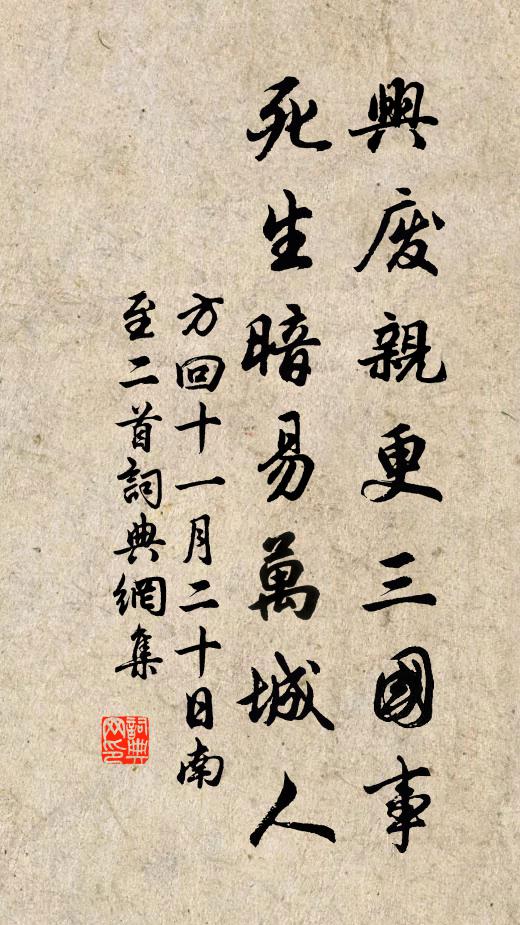 興废親更三國事
死生暗易萬城人
方回十一月二十日南
至二首詞典網集
詞典
网印